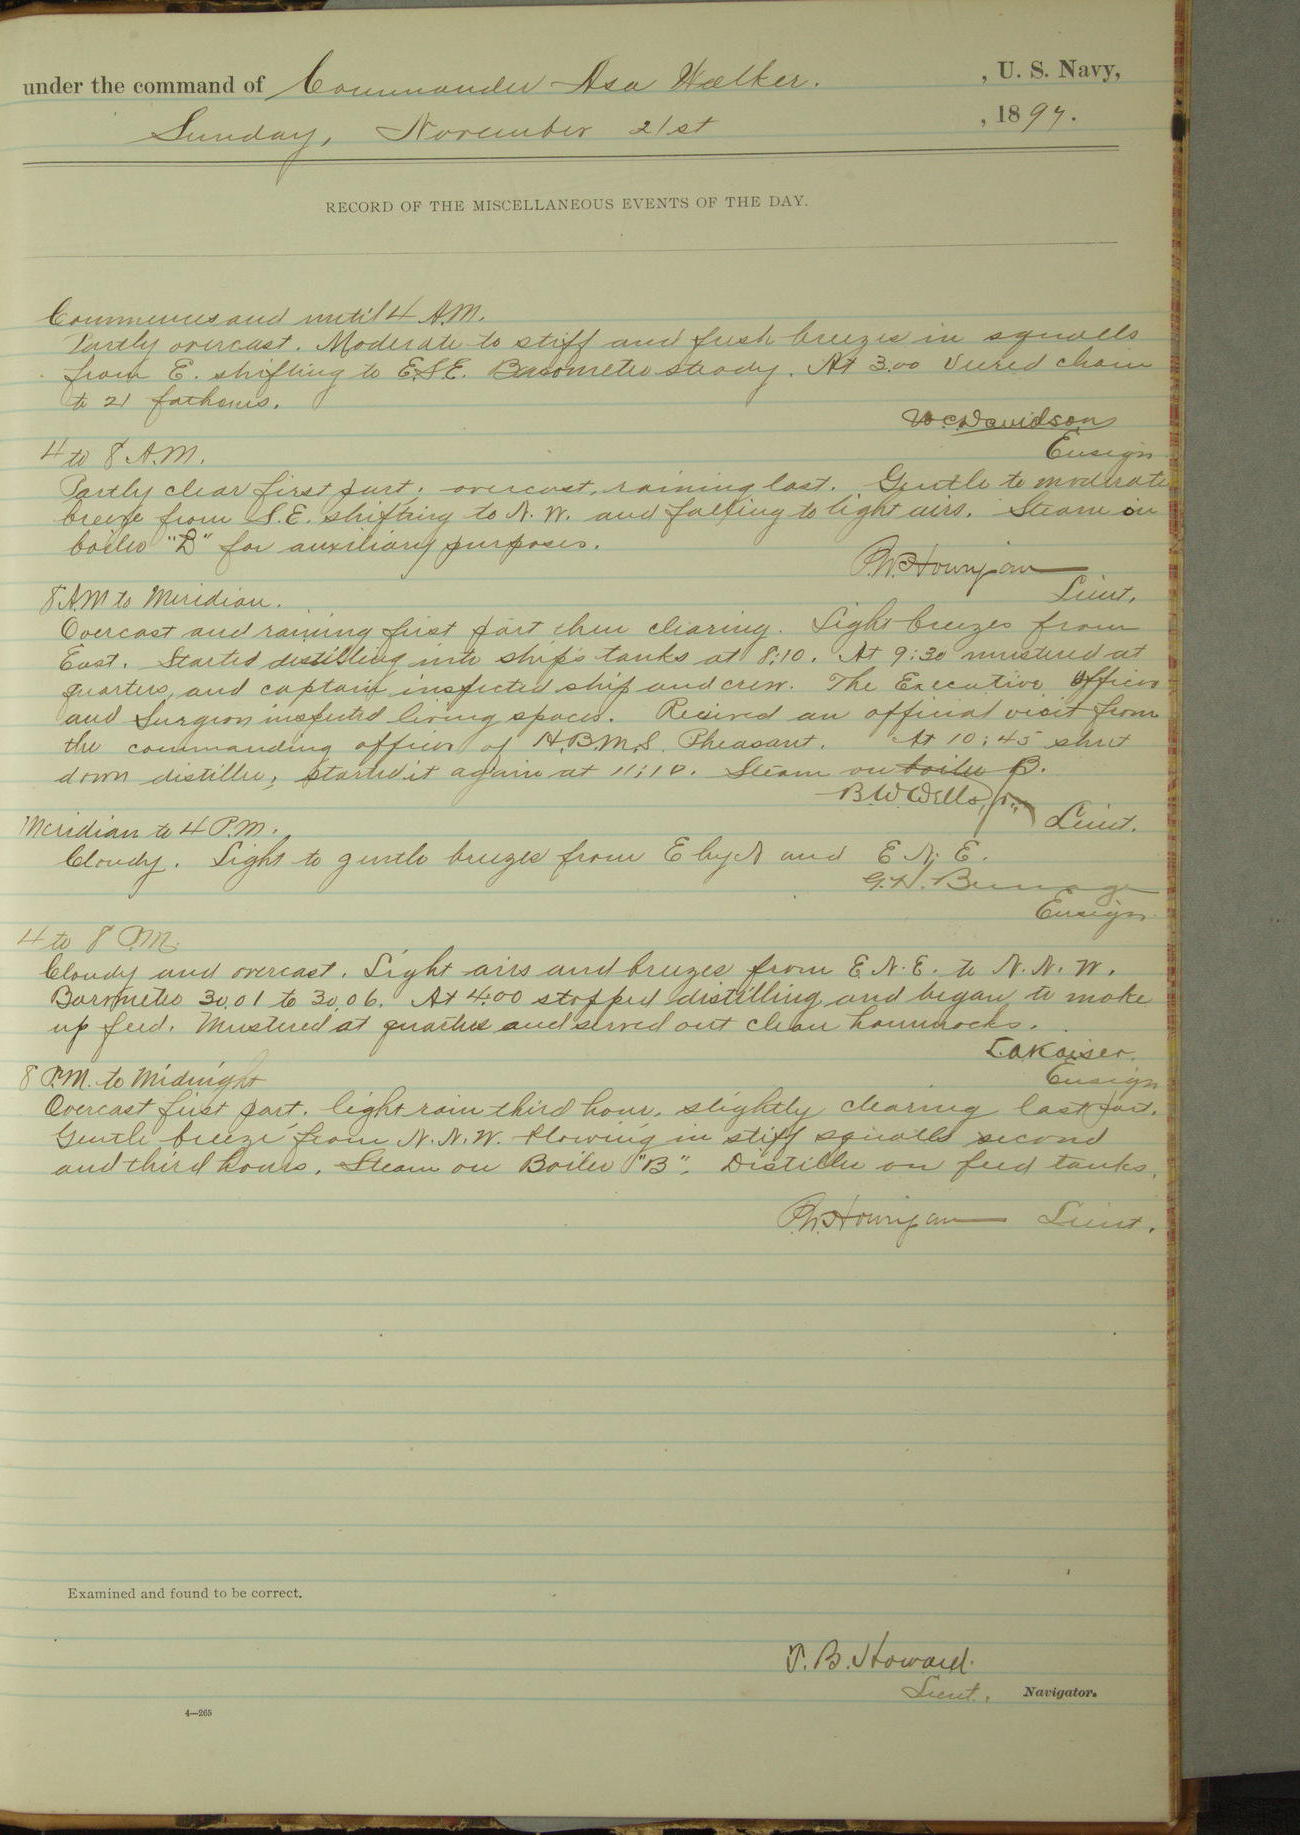 under the command of Commander Asa Walker. , U. S. Navy,
Sunday, November 21st , 1897.
RECORD OF THE MISCELLANEOUS EVENTS OF THE DAY.
Commences and until 4 A.M.
Partly overcast. Moderate to stiff and fresh breezes in squalls
from E. shifting to E.S.E. Barometer steady. At 3.00 Veered chain
to 21 fathoms.
W C Davidson
Ensign
4 to 8 A.M.
Partly clear first part. overcast, raining last. Gentle to moderate
breeze from S.E. shifting to N.W. and falling to light airs. Steam on
boiler "B" for auxiliary purposes.
P.W. Hourigan
Lieut.
8 A.M to Meridian.
Overcast and raining first part then clearing. Light breezes from
East. Started distilling into ship's tanks at 8:10. At 9:30 mustered at
quarters, and captain inspected ship and crew. The Executive Officer
and Surgeon inspected living spaces. Received an official visit from
the commanding officer of H.B.M.S. Pheasant. At 10:45 shut
down distiller; started it again at 11:10. Steam on boiler B.
B.W. Wells, Jr.
Lieut.
Meridian to 4 P.M.
Cloudy. Light to gentle breezes from E by N and E N. E.
Ensign
4 to 8 P.M.
Cloudy and overcast. Light airs and breezes from E.N.E. to N.N.W.
Barometer 30.01 to 30.06. At 4:00 stopped distilling and began to make
up feed. Mustered at quarters and served out clean hammocks.
L.A Kaiser.
Ensign
8 P.M. to Midnight
Overcast first part, light rain third hour, slightly clearing last part.
Gentle breeze from N.N.W. blowing in stiff squalls second
and third hours. Steam on Boiler "B". Distiller on feed tanks.
P.W. Hourigan Lieut.
Examined and found to be correct.
T. B. Howard.
Lieut. Navigator.
4—265